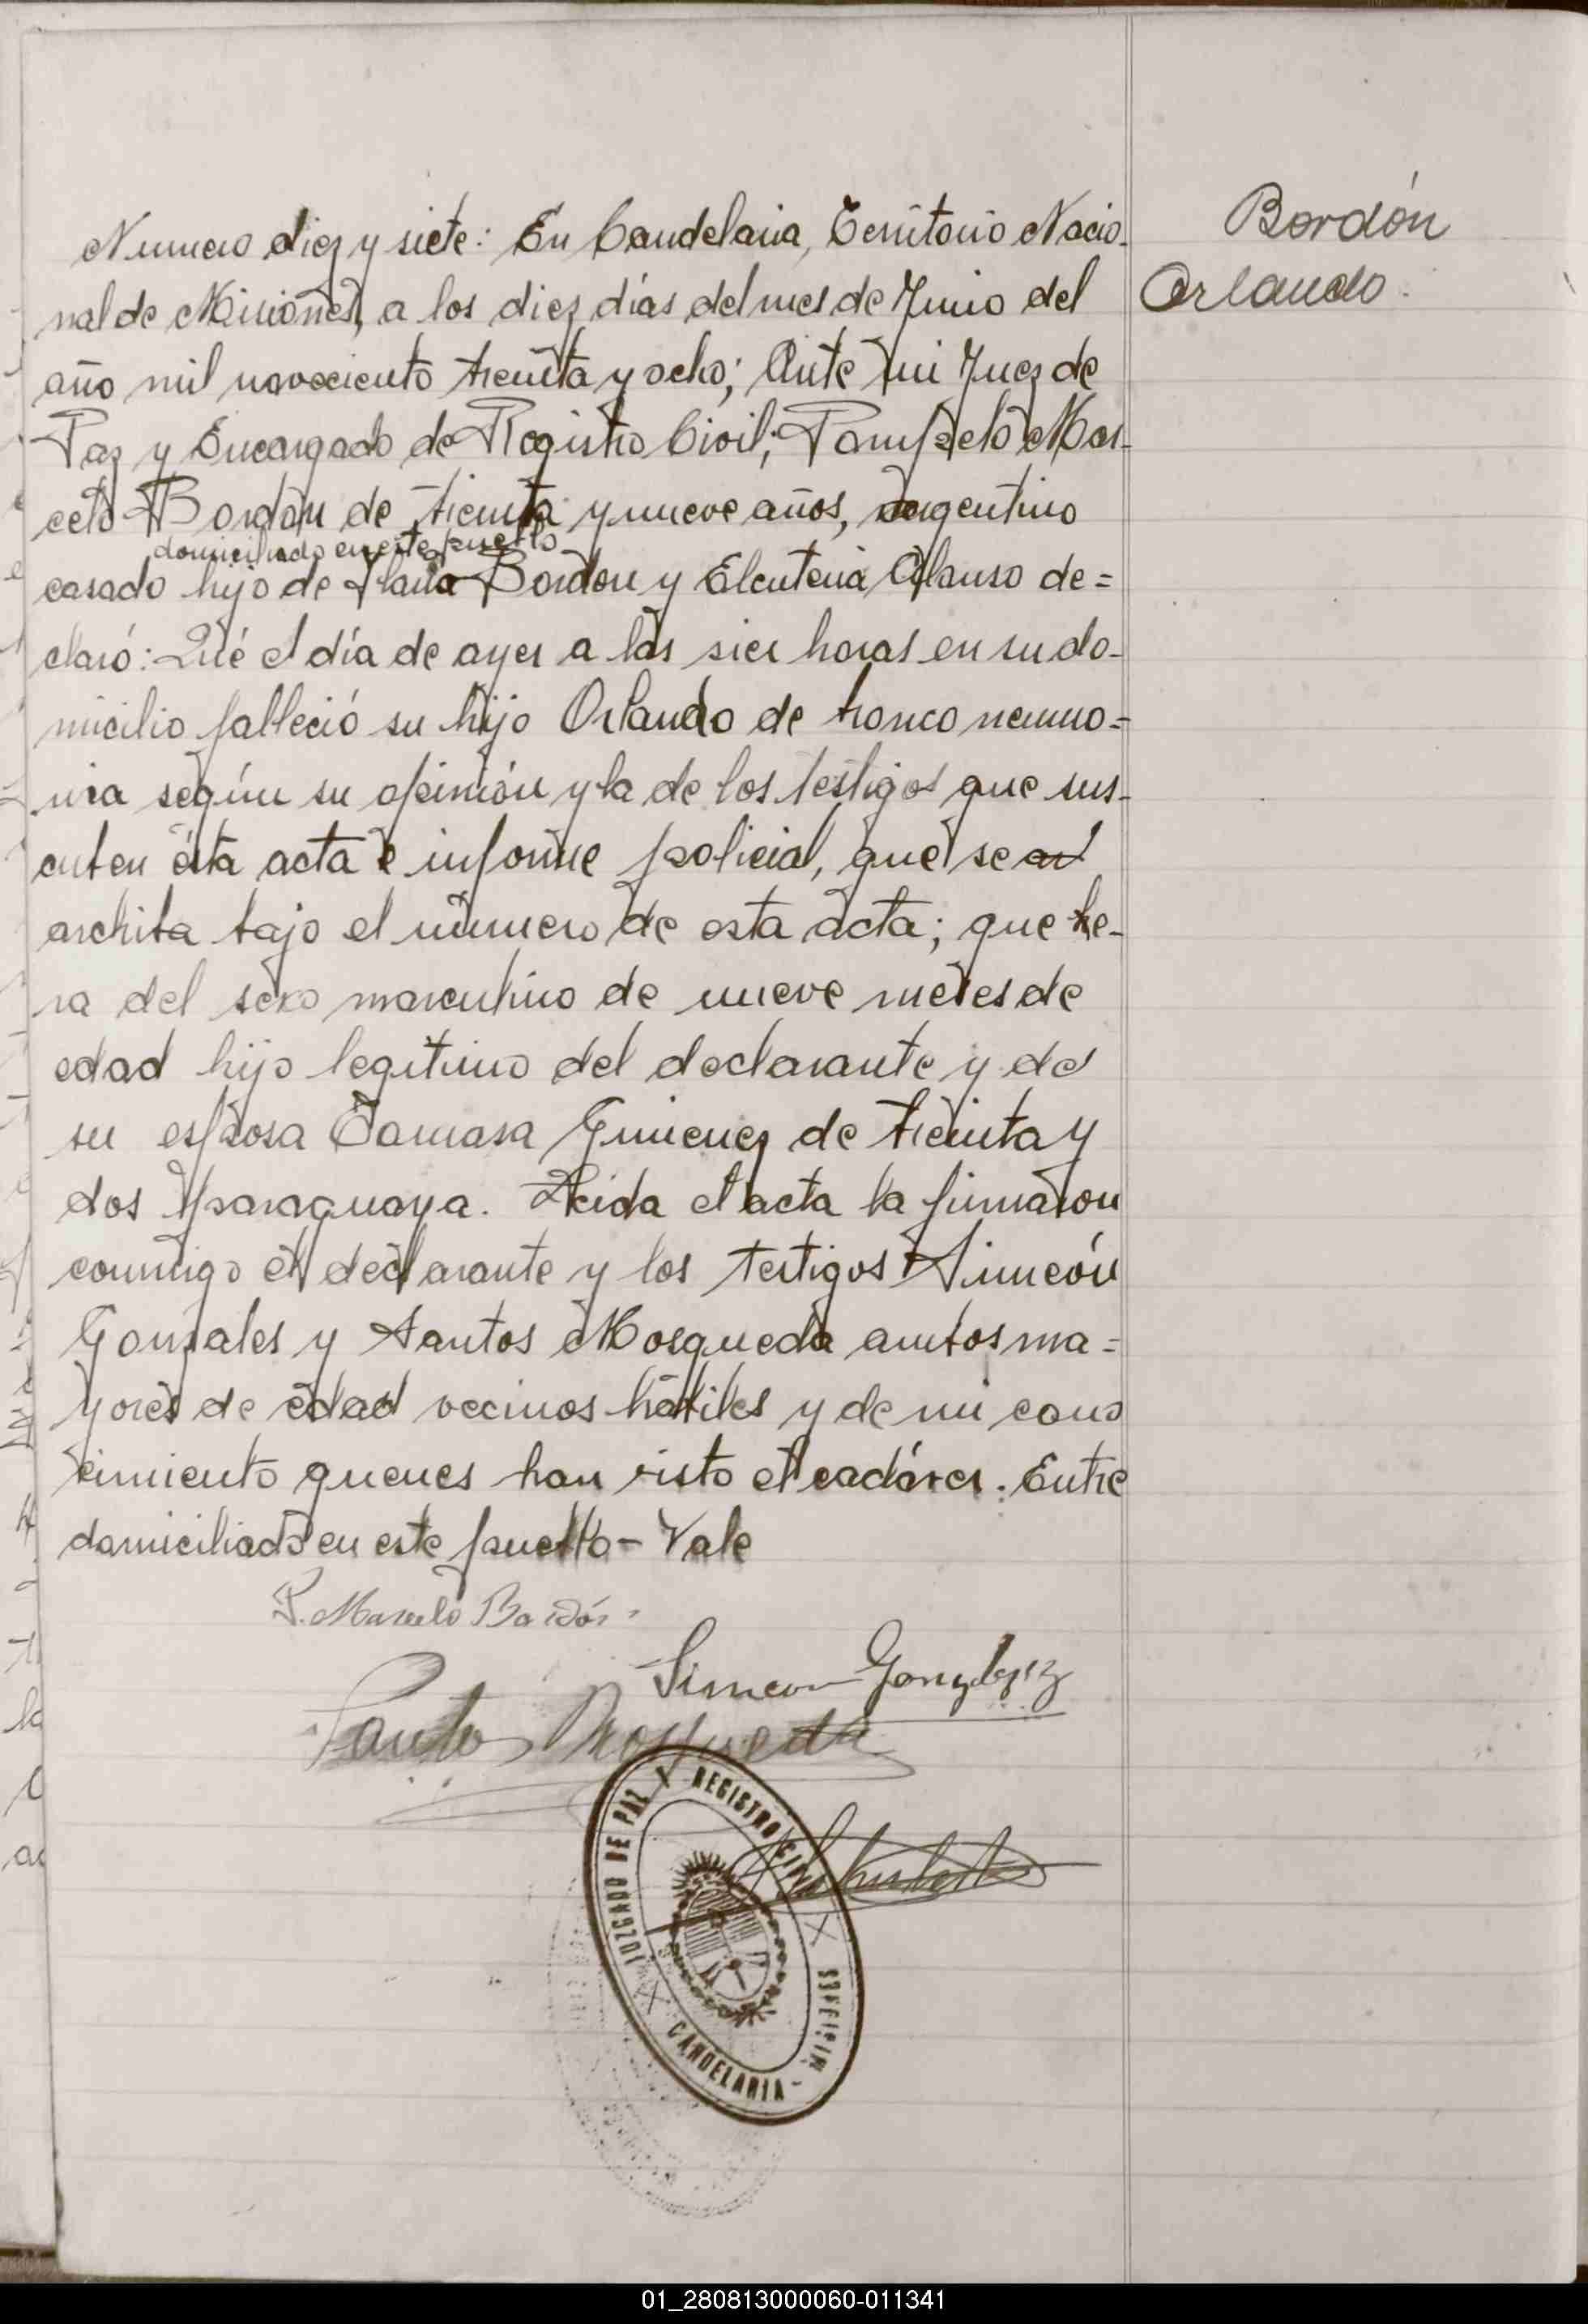 Bordón
Orlando.
Numero diez y siete: En Candelaria, Territorio Nacio-
nal de Misiones, a los diez días del mes de Junio del
año mil noveciento treinta y ocho; Ante mi Juez de
Paz y Encargado de Registro Civil; Pampelo Mar-
celo Bordón de treinta y nueve años, argentino
domiciliado en este pueblo
casado hijo de Bordon y Eleuteria Alonso de=
claró: Qué el día de ayer a las seis horas en su do-
micilio falleció su hijo Orlando de bronco neumo=
nia según su opinión y la de los testigos que sus-
criben ésta acta é informe policial, que se
archiba bajo el número de esta acta; que he-
ra del sexo masculino de nueve meses de
edad hijo legitimo del declarante y de
su esposa Damasa Gimenez de treinta y
dos paraguaya. Leida el acta la firmaron
conmigo el declarante y los testigos Simeón
Gonzales y Santos Mosqueda ambos ma=
yores de edad vecinos hábiles y de mi cono
cimiento quenes han visto el cadáver. Entre
domiciliado en este pueblo - Vale
P. Marcelo Bordón
Simeon Gonzalez
Santos Mosqueda
JUZGADO DE PAZ Y REGISTRO CIVIL
CANDELARIA - MISIONES
01_280813000060-011341